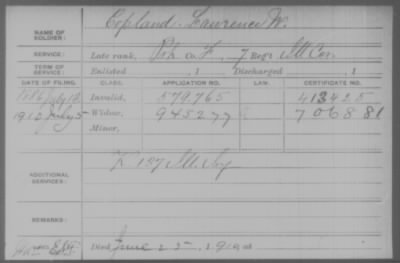 NAME OF SOLDIER: Copland, Lawrence W.
SERVICE: Late rank, Pvt. Co. F, 7 Reg't Ill Cav.
TERM OF SERVICE: Enlisted , 1 Discharged , 1
DATE OF FILING. CLASS. APPLICATION NO. LAW. CERTIFICATE NO.
1886 July 12 Invalid, 579,765 413425
1910 July 5 Widow, 945277 706881
Minor,
ADDITIONAL SERVICES: K 137 Ill. Inf
REMARKS:
Died June 25, 1910 at